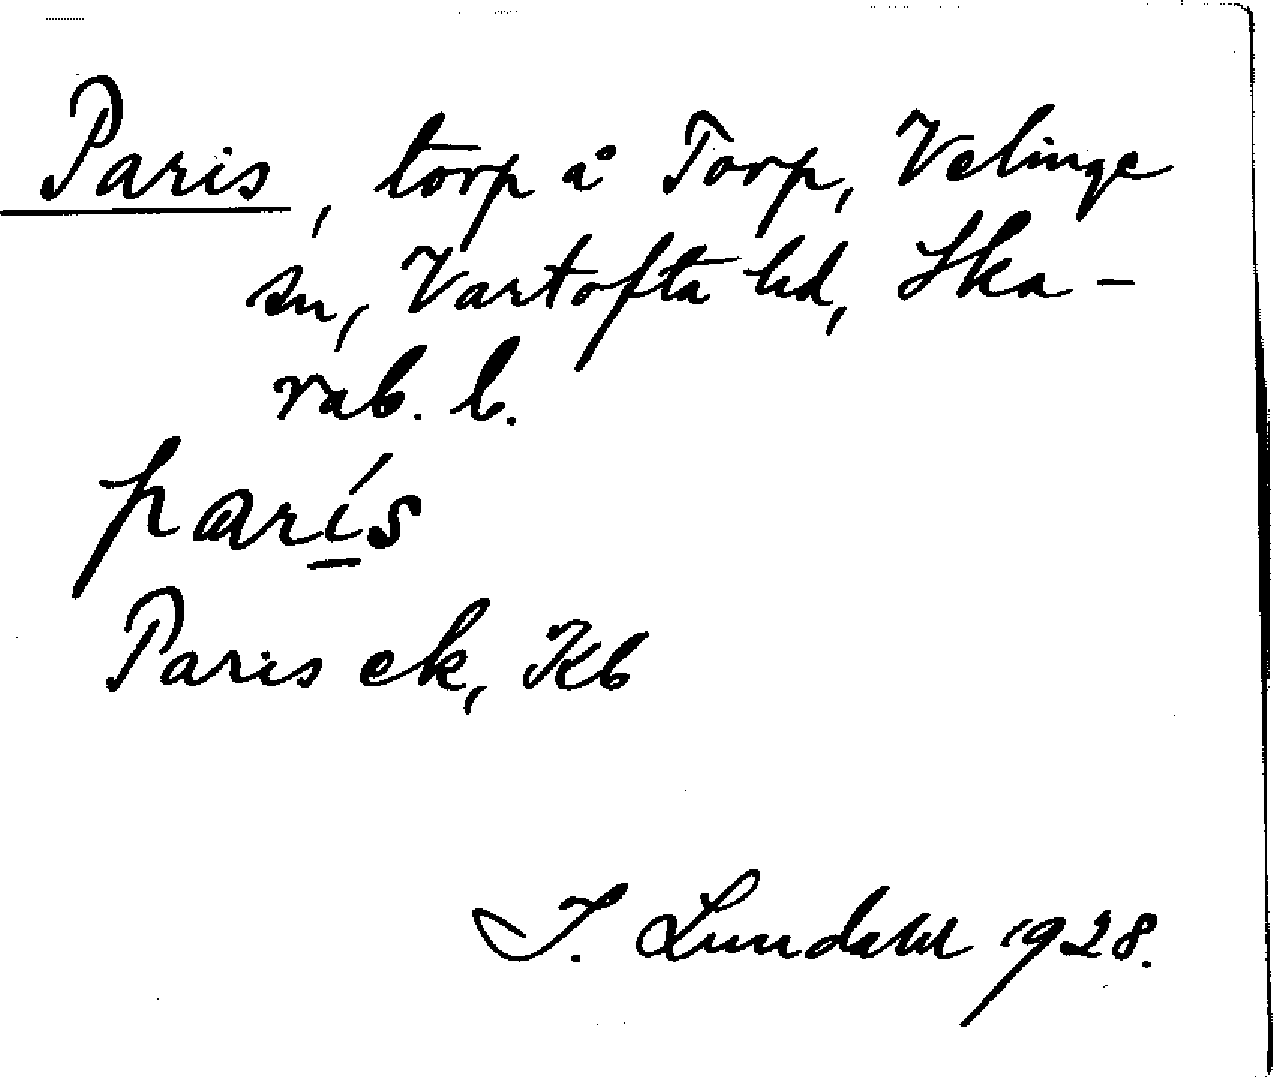 Paris, torp å Torp, Velinge
sn, Vartofta hd, Ska-
rab. l.
parís
Paris ek, Kb
I. Lundahl 1928.